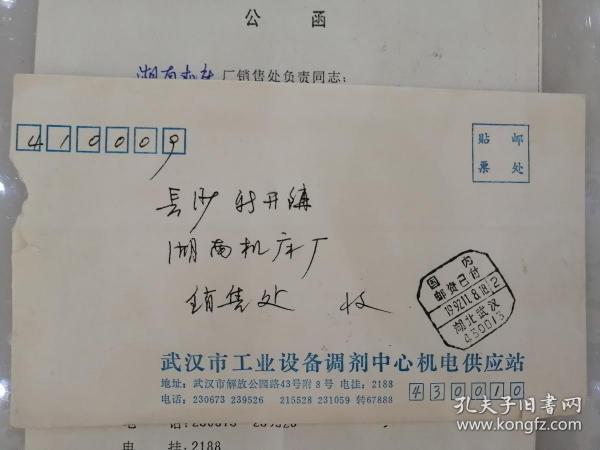 公 函
湖南机床厂销售处负责同志：
410009
贴邮
票处
长沙 新开铺
湖南机床厂
销售处 收
国内
邮资已付
1992.11.8.18.2
湖北武汉
430013
武汉市工业设备调剂中心机电供应站
地址：武汉市解放公园路43号附8号 电挂：2188
电话：230673 239526 215528 231059 转67888
430010
电 话：230673 239526
电 挂：2188
孔夫子旧书网
www.kongfz.com